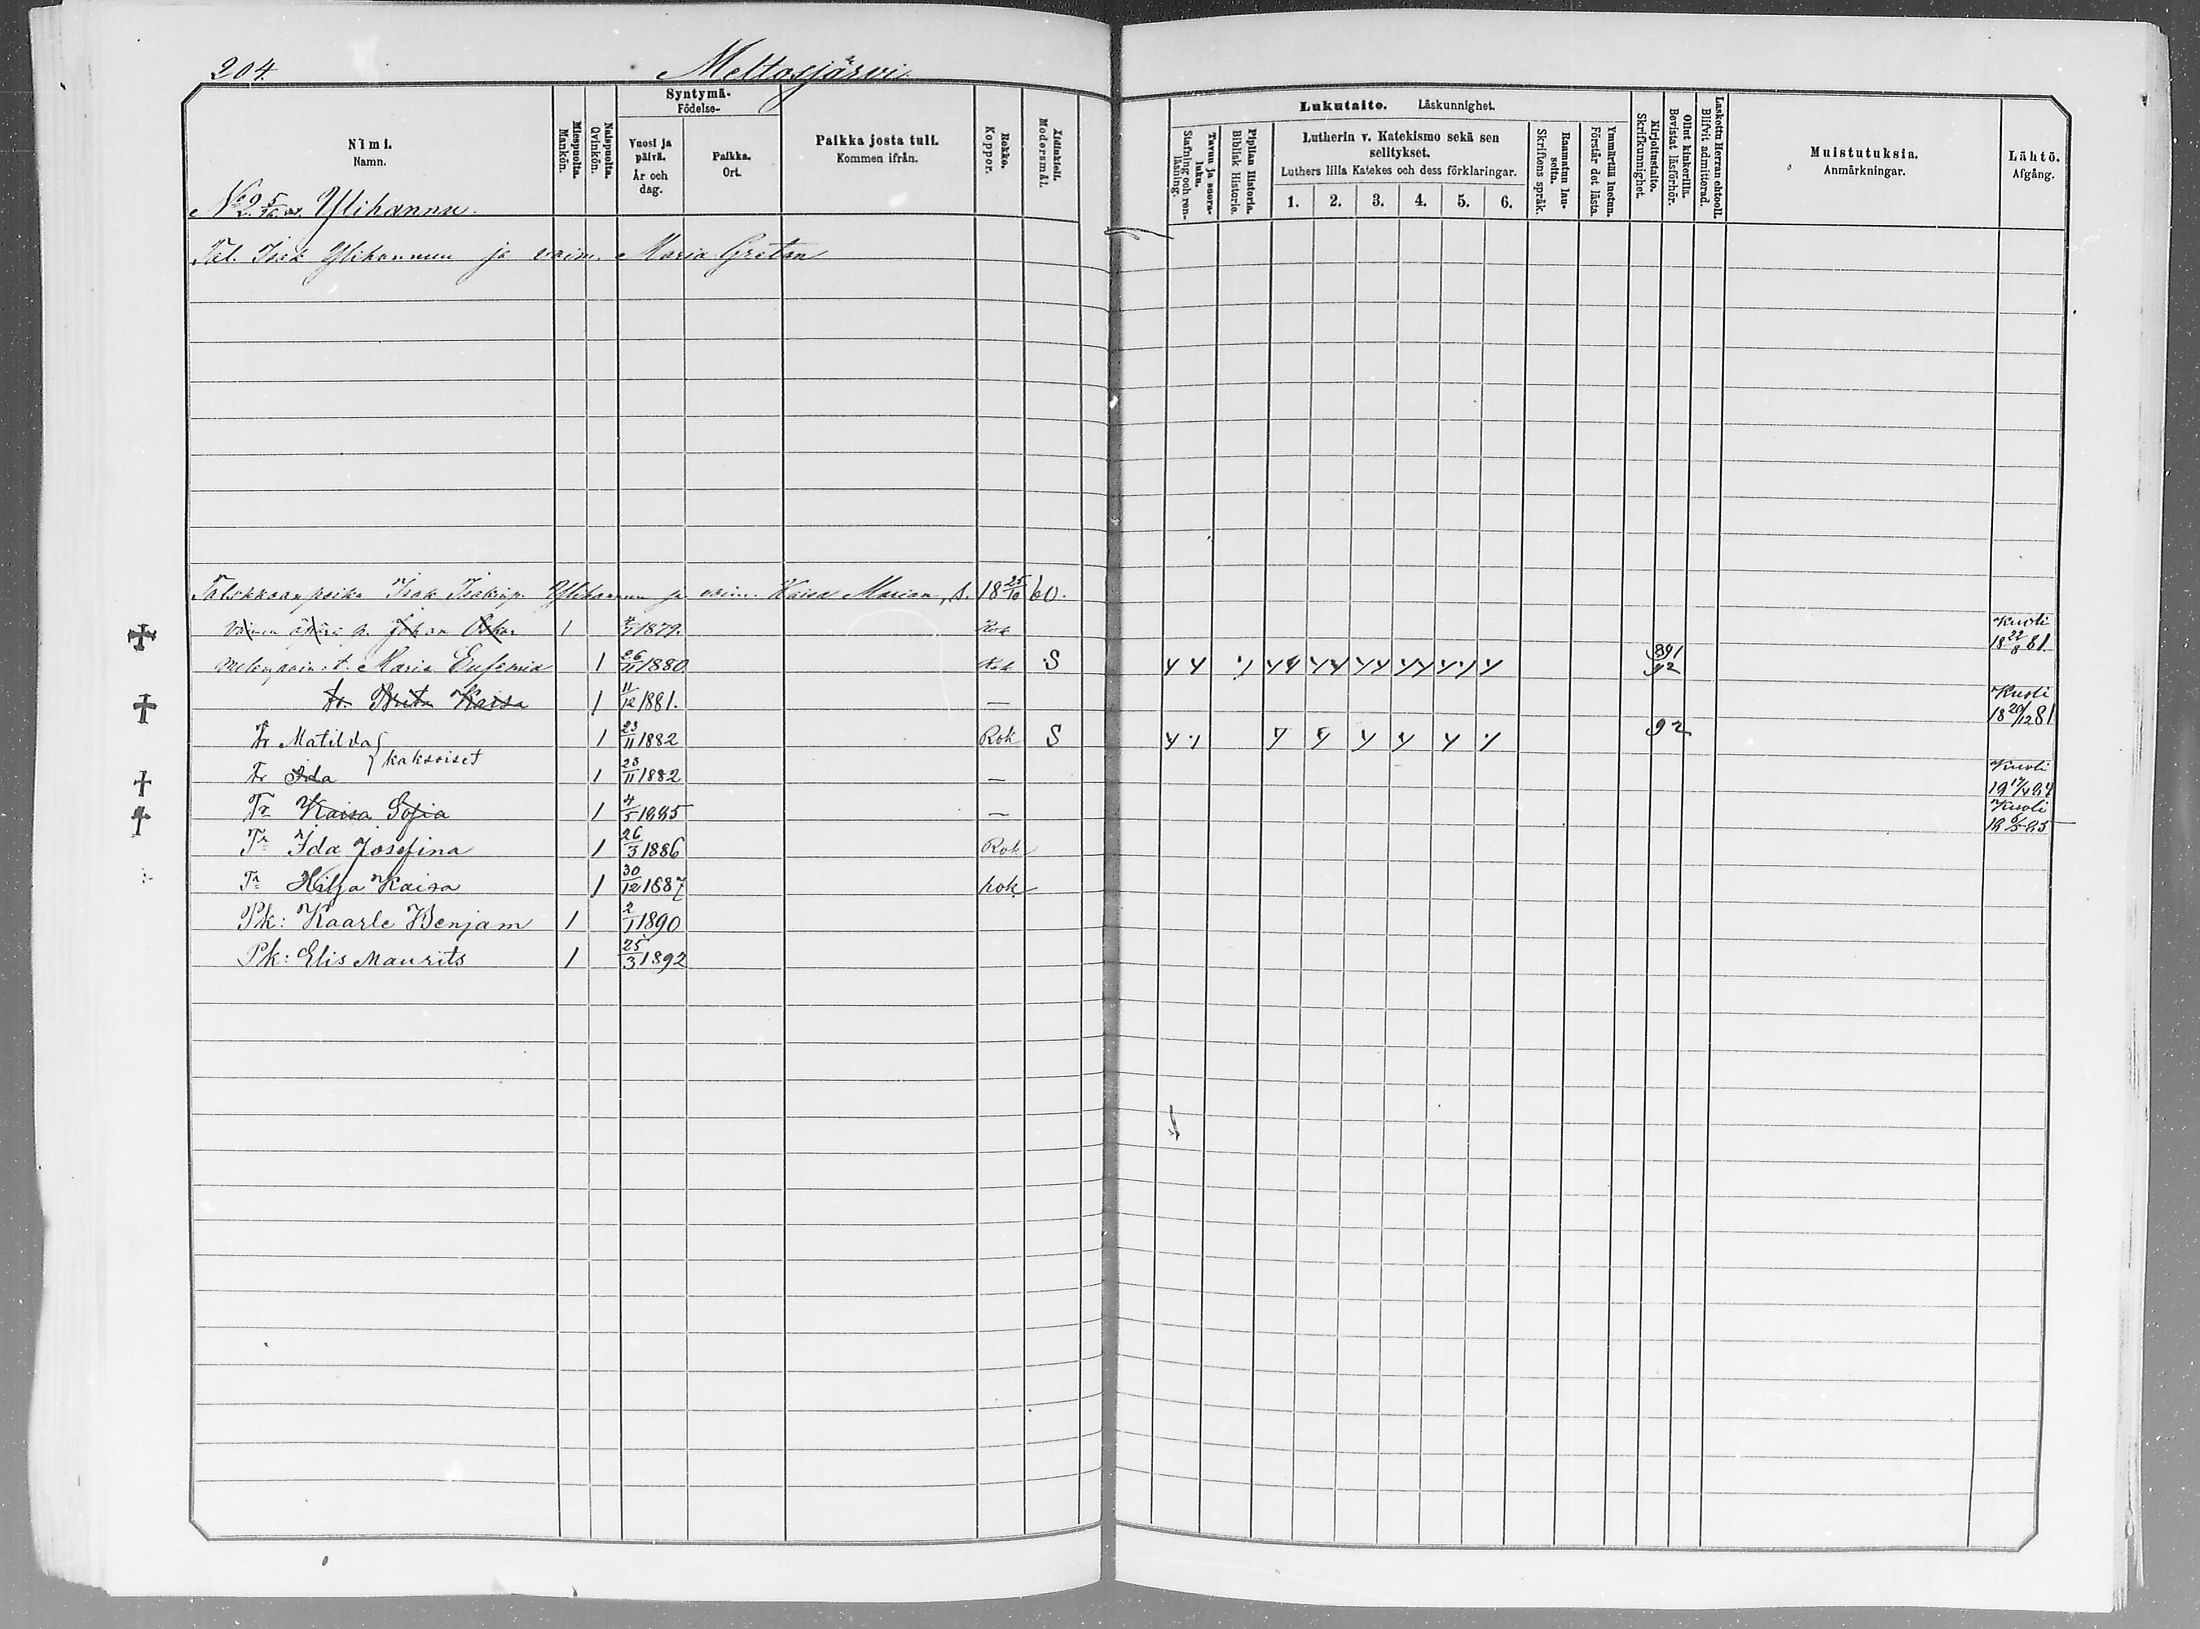 204.
Meltosjärvi.
Nimi.
Namn.
Miespuolta.
Mankön.
Naispuolta.
Qvinkön.
Syntymä-
Födelse-
Vuosi ja päivä.
År och dag.
Paikka.
Ort.
Paikka josta tuli.
Kommen ifrån.
Rokko.
Koppor.
Äidinkieli.
Modersmål.
Lukutaito. Läskunnighet.
Tavun ja suora-luku.
Stafning och ren-läsning.
Piplian Historia.
Biblisk Historie.
Lutherin v. Katekismo sekä sen
selitykset.
Luthers lilla Katekes och dess förklaringar.
1. 2. 3. 4. 5. 6.
Raamatun lau-seita.
Skriftens språk.
Ymmärtää luetun.
Förstår det lästa.
Kirjoitustaito.
Skrifkunnighet.
Ollut kinkerillä.
Bevistat läsförhör.
Laskettu Herran ehtooll.
Blifvit admitterad.
Muistutuksia.
Anmärkningar.
Lähtö.
Afgång.
No 2. Ylihannu.
Tal. Isak Ylihannun ja vaim. Maria Gretan
Talokkaan poika Isak Isakinp. Ylihannun ja vaim. Kaisa Marian, s. 18 25/10 60.
p. Johan Oskar 1 1879. Rok Kuoli 18 22/8 81.
t. Maria Eufemia 1 26/11 1880 Rok S 891 92
tr. Brita Kaisa 1 11/12 1881. — Kuoli 18 20/12 81
Tr Matilda 1 23/11 1882 Rok S 92
kaksoiset
Tr Ida 1 23/11 1882 — Kuoli
Tr Kaisa Sofia 1 4/5 1885 — Kuoli
Tr Ida Josefina 1 26/3 1886 Rok
Tr Hilja Kaisa 1 30/12 1887 rok
Pk: Kaarle Benjam 1 2/1 1890
Pk: Elis Maurits 1 25/3 1892